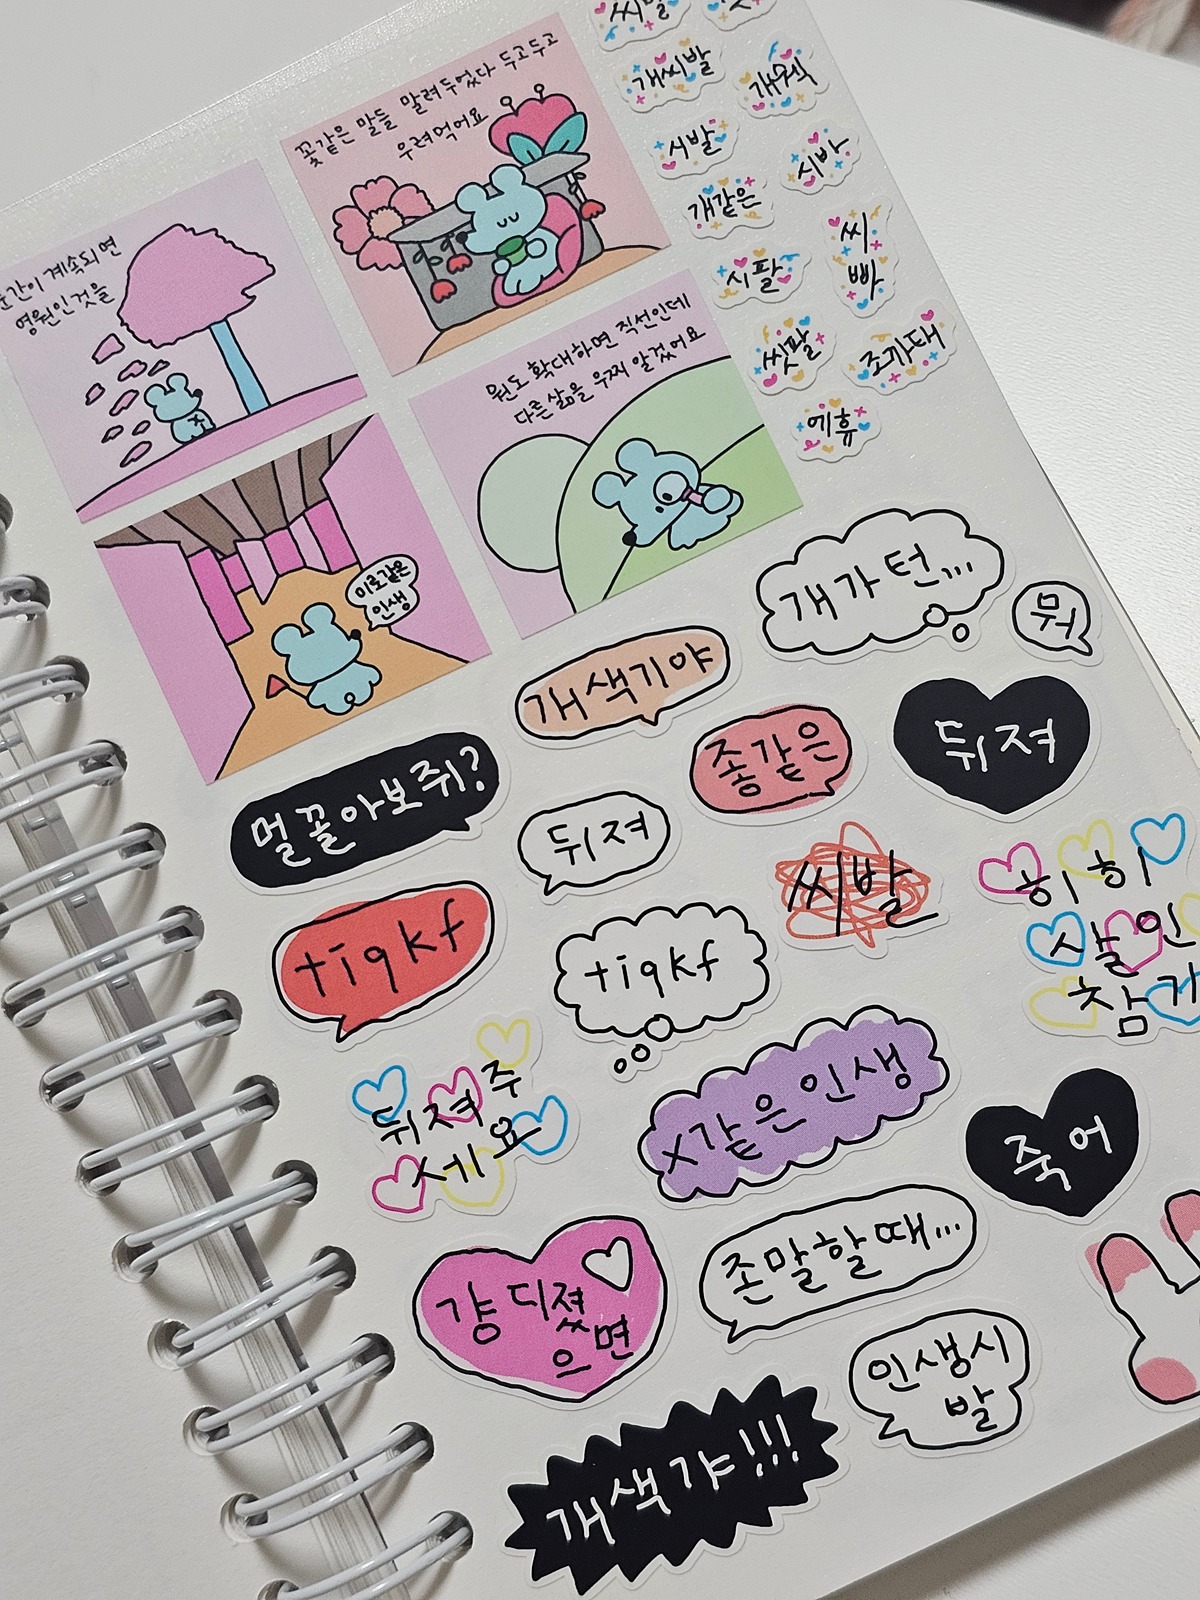 꽃같은 말들 말려두었다 두고두고
우려먹어요
순간이 계속되면
영원인것을
뭔도 확대하면 직선인데
다른 삶을 우찌 알겠어요
미로같은
인생
씨발
개씨발
개웩
시발
시바
개같은
씨
빠
시팔
씻팔
조까태
에휴
개가 턴...
뭐
개색기야
좋같은
뒤져
멀꼴아보쥐?
뒤져
씨발
히히
살인
참기
tiqkf
tiqkf
뒤져주
세요
x같은 인생
죽어
걍 디졌
으면
존말할때...
인생시
발
개색갸!!!